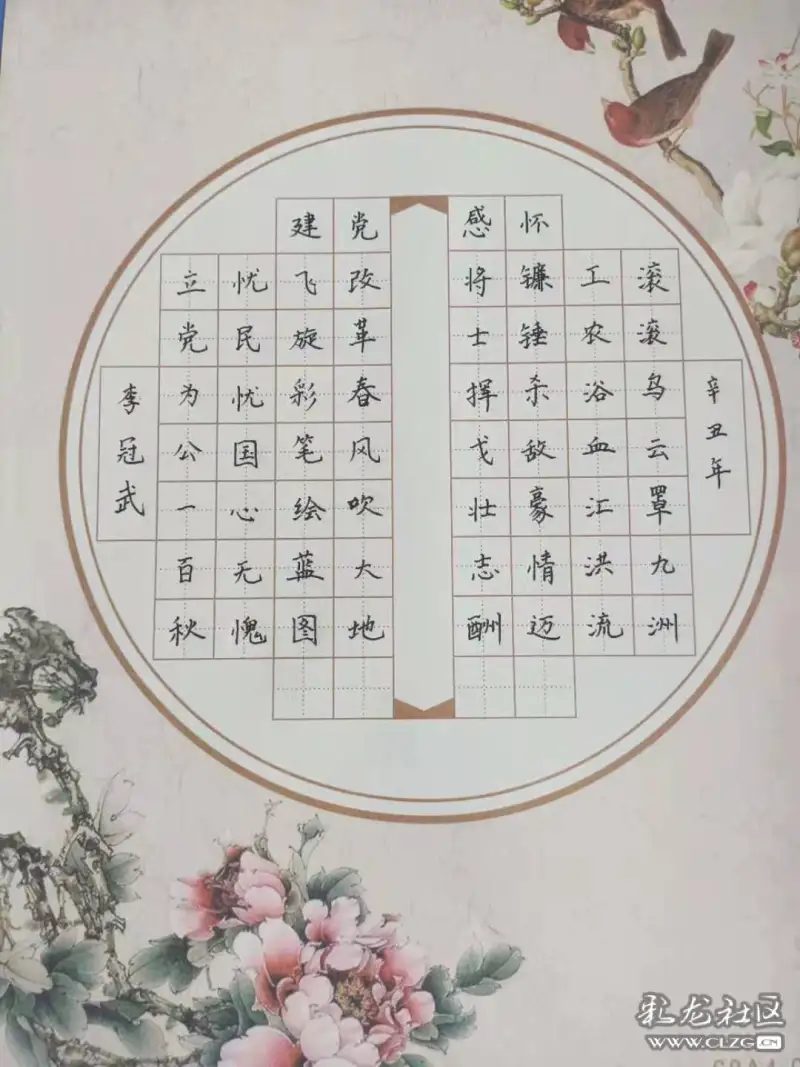 建党感怀
辛丑年
滚滚乌云罩九洲
工农浴血汇洪流
镰锤杀敌豪情迈
将士挥戈壮志酬
改革春风吹大地
飞旋彩笔绘蓝图
忧民忧国心无愧
立党为公一百秋
李冠武
彩龙社区
WWW.CLZG.CN